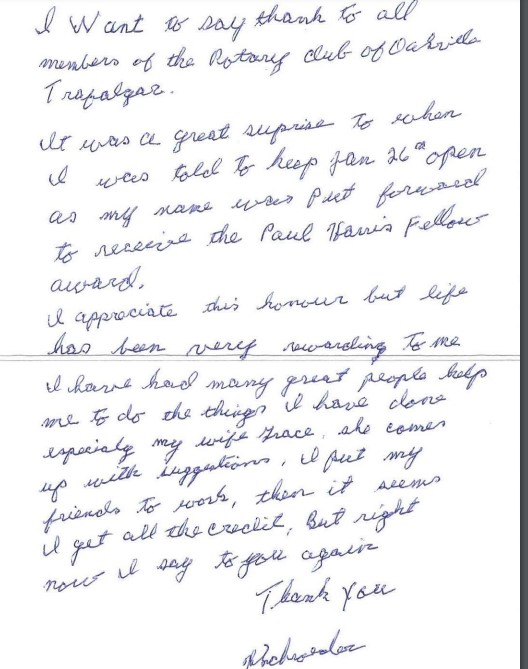 I Want to say thank to all
members of the Rotary club of Oakville
Trafalgar.
It was a great suprise to when
I was told to keep Jan 26th open
as my name was Put forward
to receive the Paul Harris Fellow
award.
I appreciate this honour but life
has been very rewarding to me
I have had many great people help
me to do the things I have done
especialy my wife Grace, she comes
up with suggestions, I put my
friends to work, then it seems
I get all the credit, But right
now I say to you again
Thank You
Schroeder